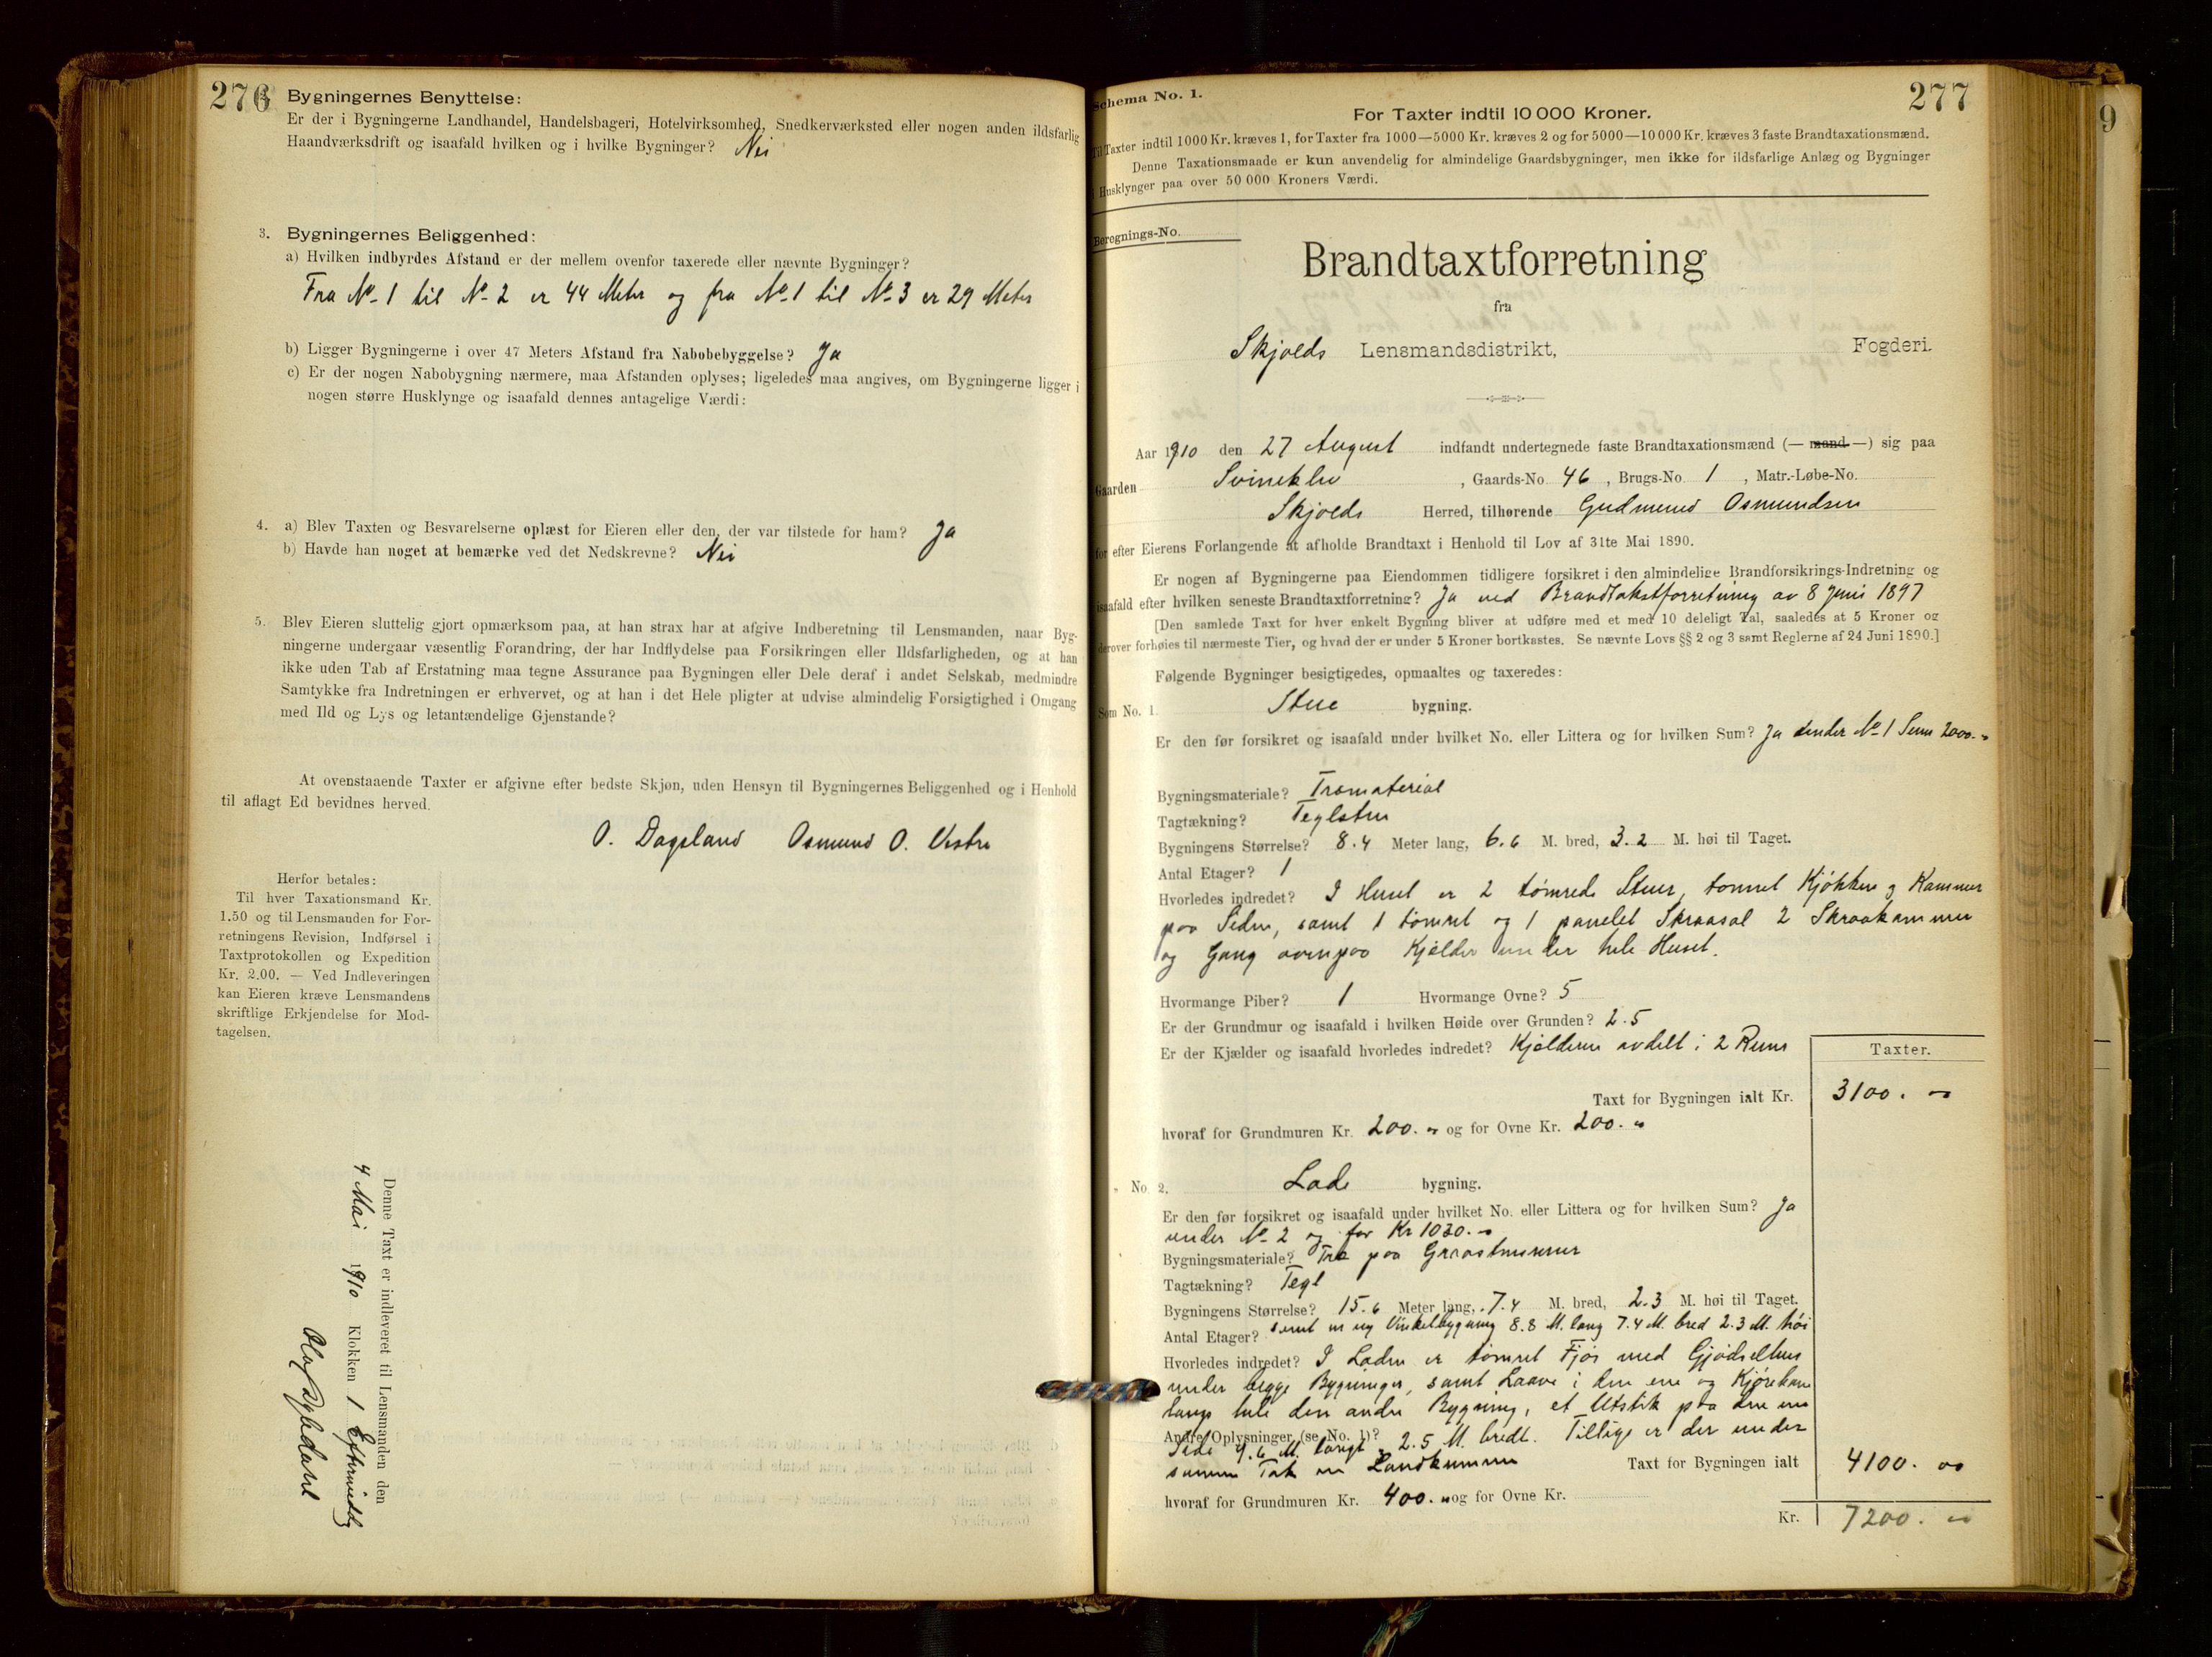 276
Bygningernes Benyttelse:
Er der i Bygningerne Landhandel, Handelsbageri, Hotelvirksomhed, Snedkerværksted eller nogen anden ildsfarlig
Haandværksdrift og isaafald hvilken og i hvilke Bygninger? Nei
3. Bygningernes Beliggenhed:
a) Hvilken indbyrdes Afstand er der mellem ovenfor taxerede eller nævnte Bygninger?
Fra No 1 til No 2 er 44 Meter og fra No 1 til No 3 er 29 Meter
b) Ligger Bygningerne i over 47 Meters Afstand fra Nabobebyggelse? Ja
c) Er der nogen Nabobygning nærmere, maa Afstanden oplyses; ligeledes maa angives, om Bygningerne ligger i
nogen større Husklynge og isaafald dennes antagelige Værdi:
4. a) Blev Taxten og Besvarelserne oplæst for Eieren eller den, der var tilstede for ham? Ja
b) Havde han noget at bemærke ved det Nedskrevne? Nei
5. Blev Eieren sluttelig gjort opmærksom paa, at han strax har at afgive Indberetning til Lensmanden, naar Byg-
ningerne undergaar væsentlig Forandring, der har Indflydelse paa Forsikringen eller Ildsfarligheden, og at han
ikke uden Tab af Erstatning maa tegne Assurance paa Bygningen eller Dele deraf i andet Selskab, medmindre
Samtykke fra Indretningen er erhvervet, og at han i det Hele pligter at udvise almindelig Forsigtighed i Omgang
med Ild og Lys og letantændelige Gjenstande?
At ovenstaaende Taxter er afgivne efter bedste Skjøn, uden Hensyn til Bygningernes Beliggenhed og i Henhold
til aflagt Ed bevidnes herved.
O. Dagsland Osmund O. Vestre
Herfor betales:
Til hver Taxationsmand Kr.
1.50 og til Lensmanden for For-
retningens Revision, Indførsel i
Taxtprotokollen og Expedition
Kr. 2.00. — Ved Indleveringen
kan Eieren kræve Lensmandens
skriftlige Erkjendelse for Mod-
tagelsen.
Denne Taxt er indleveret til Lensmanden den
4 Mai 1910 Klokken 1 Eftermiddag
277
Schema No. 1.
For Taxter indtil 10 000 Kroner.
Til Taxter indtil 1000 Kr. kræves 1, for Taxter fra 1000—5000 Kr. kræves 2 og for 5000—10 000 Kr. kræves 3 faste Brandtaxationsmænd.
Denne Taxationsmaade er kun anvendelig for almindelige Gaardsbygninger, men ikke for ildsfarlige Anlæg og Bygninger
i Husklynger paa over 50 000 Kroners Værdi.
Beregnings-No.
Brandtaxtforretning
fra
Skjolds Lensmandsdistrikt, Fogderi.
Aar 1910 den 27 August indfandt undertegnede faste Brandtaxationsmænd (— mand —) sig paa
Gaarden Svineklev, Gaards-No. 46, Brugs-No. 1, Matr.-Løbe-No.
Skjolds Herred, tilhørende Gudmund Osmundsen
for efter Eierens Forlangende at afholde Brandtaxt i Henhold til Lov af 31te Mai 1890.
Er nogen af Bygningerne paa Eiendommen tidligere forsikret i den almindelige Brandforsikrings-Indretning og
isaafald efter hvilken seneste Brandtaxtforretning? Ja ved Brandtakstforretning av 8 Juni 1897
[Den samlede Taxt for hver enkelt Bygning bliver at udføre med et med 10 deleligt Tal, saaledes at 5 Kroner og
derover forhøies til nærmeste Tier, og hvad der er under 5 Kroner bortkastes. Se nævnte Lovs §§ 2 og 3 samt Reglerne af 24 Juni 1890.]
Følgende Bygninger besigtigedes, opmaaltes og taxeredes:
Som No. 1. Stue bygning.
Er den før forsikret og isaafald under hvilket No. eller Littera og for hvilken Sum? Ja under No 1 Sum 2000.-
Bygningsmateriale? Træmaterial
Tagtækning? Teglsten
Bygningens Størrelse? 8.4 Meter lang, 6.6 M. bred, 3.2 M. høi til Taget.
Antal Etager? 1
Hvorledes indredet? I Huset er 2 tømrede Stuer, tømret Kjøkken og Kammer
paa Siden, samt 1 tømret og 1 panelet Skraasal 2 Skraakammer
og Gang ovenpaa Kjelder under hele Huset.
Hvormange Piber? 1 Hvormange Ovne? 5
Er der Grundmur og isaafald i hvilken Høide over Grunden? 2.5
Er der Kjælder og isaafald hvorledes indredet? Kjelderen avdelt i 2 Rum
Taxter.
Taxt for Bygningen ialt Kr. 3100. -
hvoraf for Grundmuren Kr. 200. - og for Ovne Kr. 200. -
No. 2. Lade bygning.
Er den før forsikret og isaafald under hvilket No. eller Littera og for hvilken Sum? Ja
under No 2 og for Kr 1030.-
Bygningsmateriale? Træ paa Graastensmur
Tagtækning? Tegl
Bygningens Størrelse? 15.6 Meter lang, 7.4 M. bred, 2.3 M. høi til Taget.
Antal Etager? samt en ny Vinkelbygning 8.8 M. lang 7.4 M. bred 2.3 M. høi
Hvorledes indredet? I Laden er tømret Fjøs med Gjødselhus
under begge Bygninger, samt Laave i den ene og Kjørebane
langs hele den andre Bygning, et Utstik paa den ene
Andre Oplysninger (se No. 1)?
Side 9.6 M. langt 2.5 M. bredt. Tillige er der under
samme Tak en
Taxt for Bygningen ialt 4100. -
hvoraf for Grundmuren Kr. 400. - og for Ovne Kr.
Kr. 7200. -
9